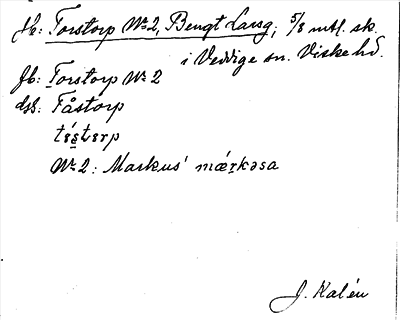 Jb: Torstorp Nr 2, Bengt Larsg, 5/8 mtl. sk.
i Veddige sn. Viske hd.
Jb: Torstorp Nr 2
dss: Tåstorp
Nr 2: Markus'
J. Kalén